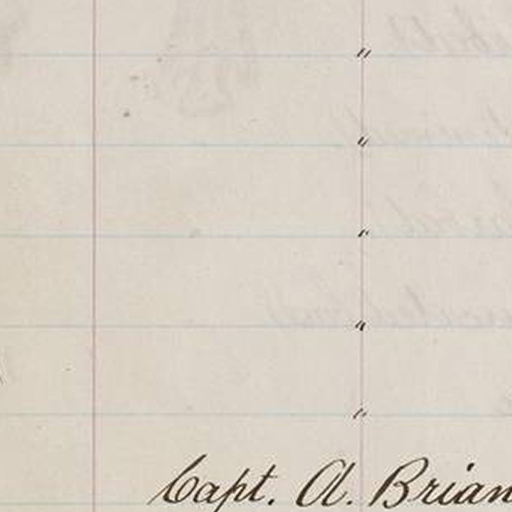 "
"
"
"
"
Capt. A. Brian